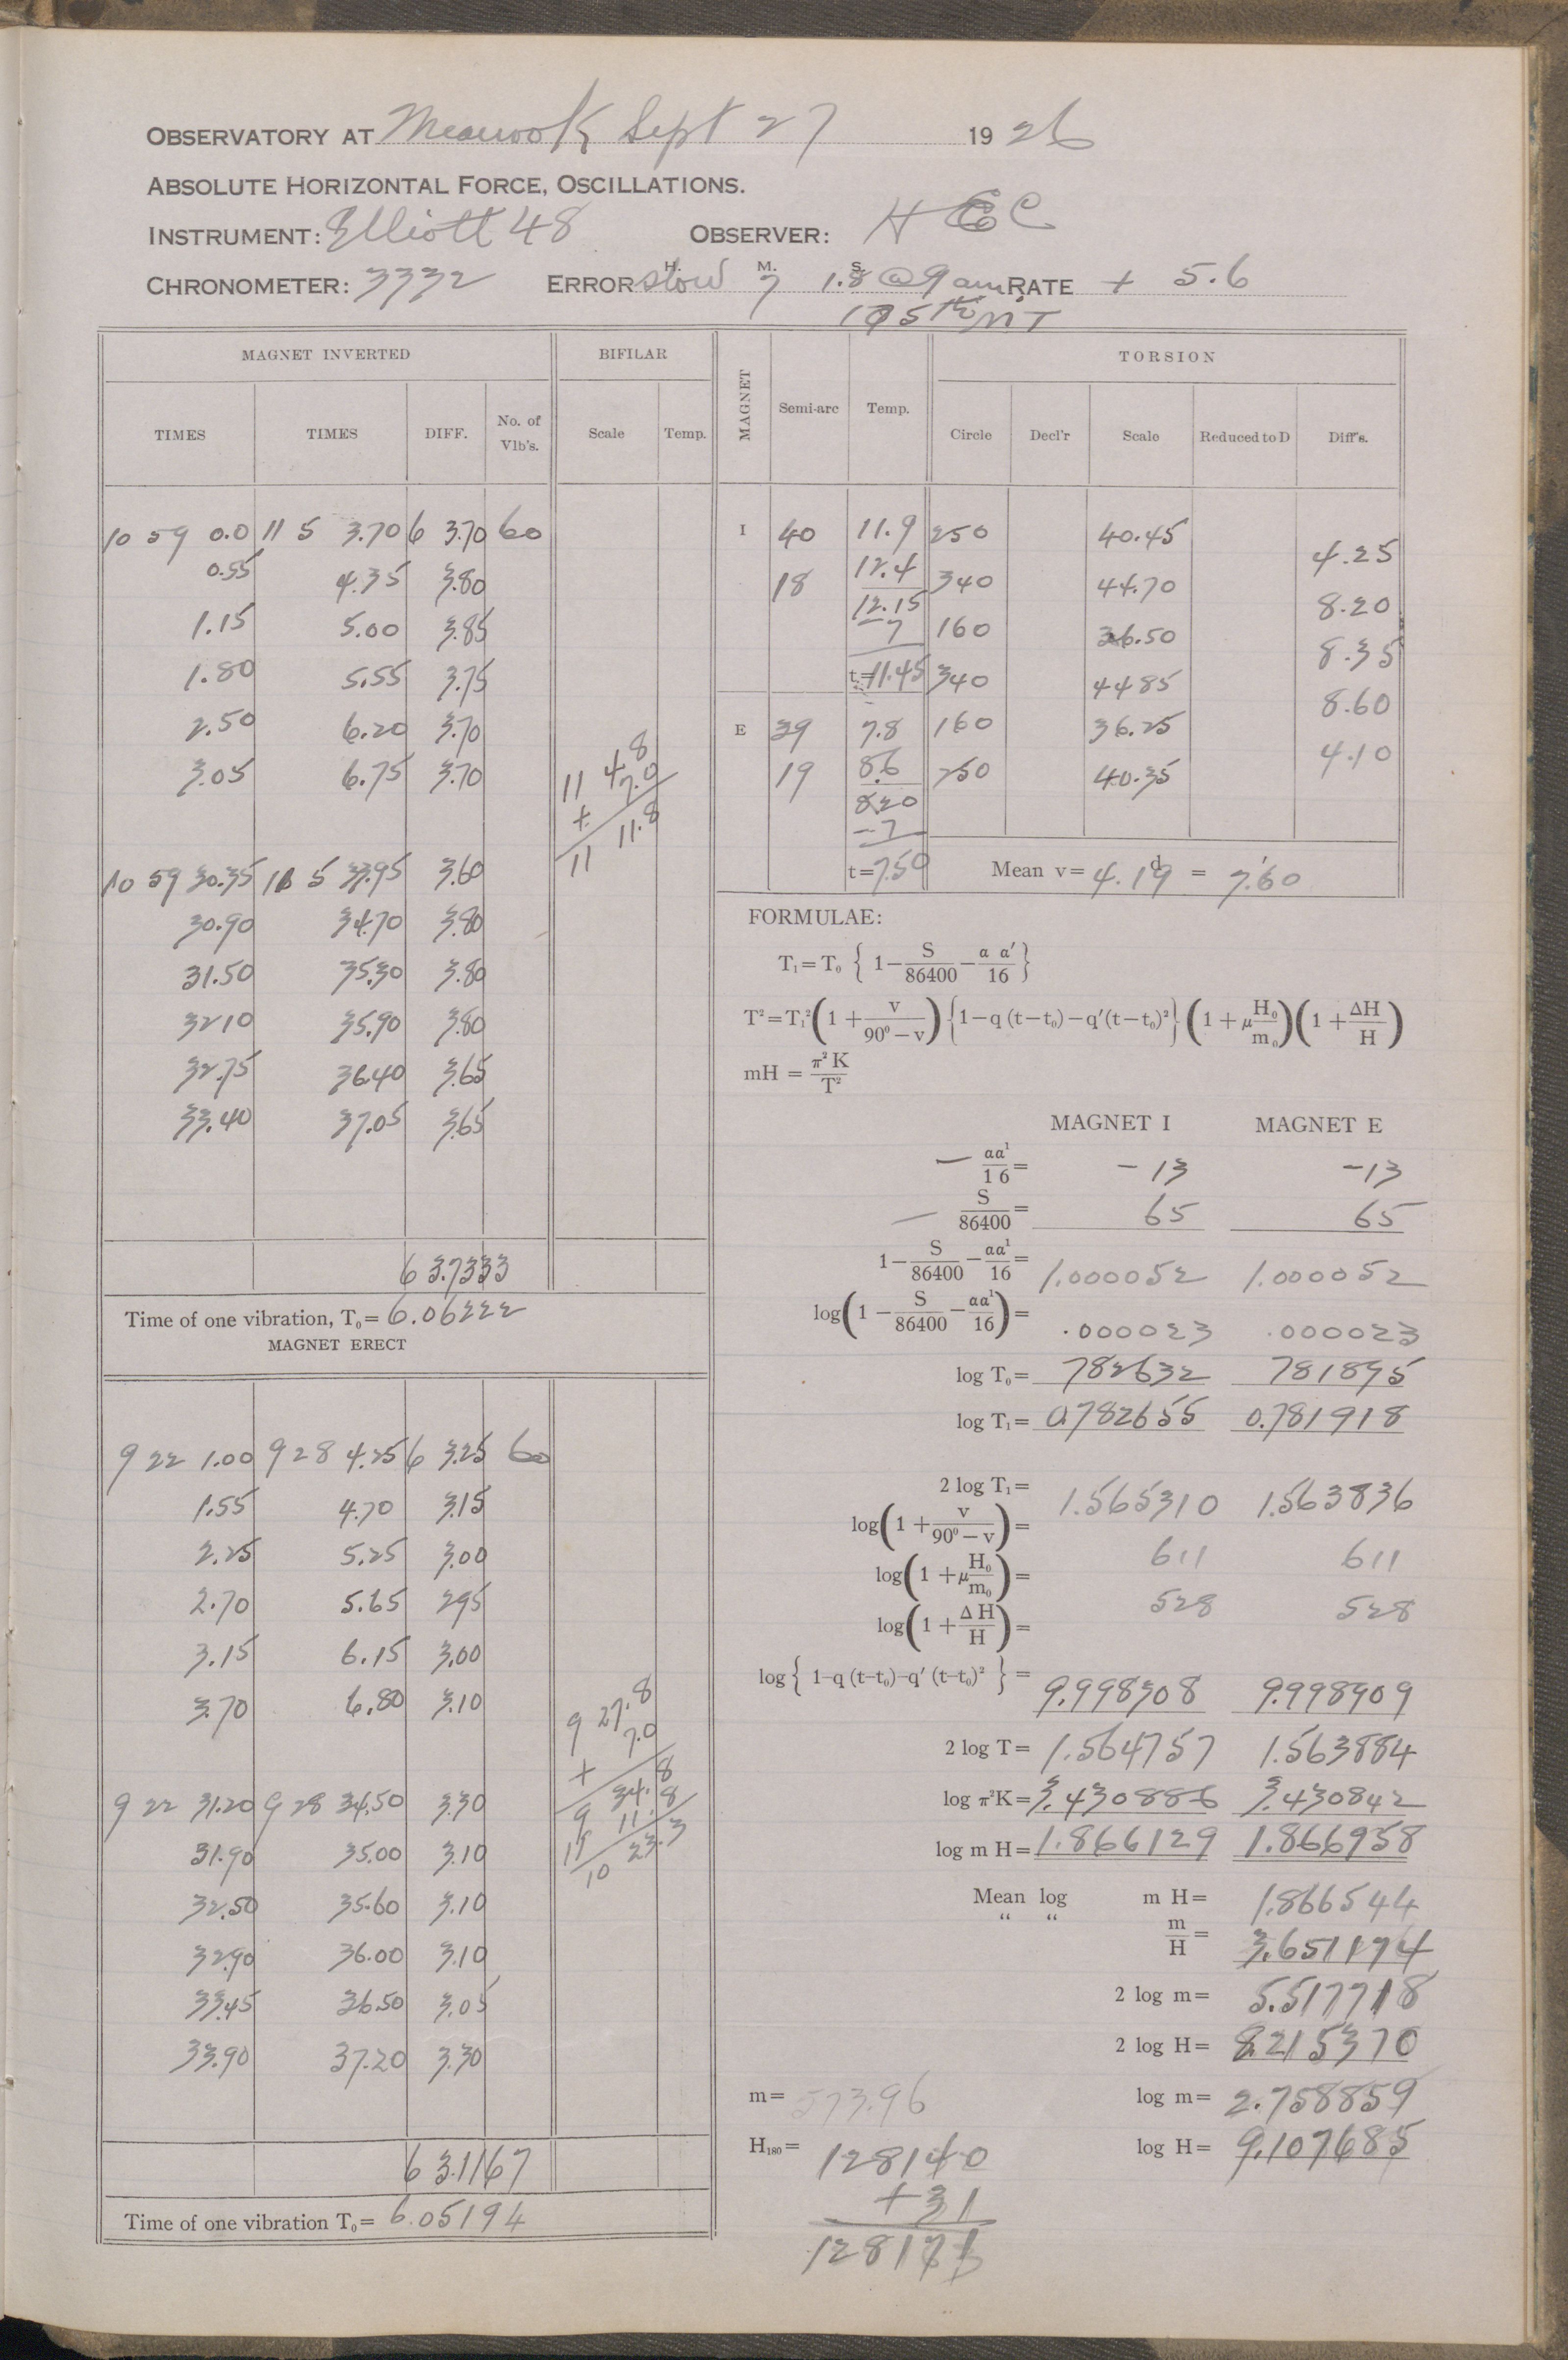 OBSERVATORY AT Meanook Sept 27 1926
ABSOLUTE HORIZONTAL FORCE, OSCILLATIONS.
INSTRUMENT: Elliott 48 OBSERVER: H E C
CHRONOMETER: 3332 ERROR slow H. M. 7 S. 1.8 @ 9 am RATE + 5.6
105th M T
MAGNET INVERTED BIFILAR
TIMES TIMES DIFF. No. of Vib's. Scale Temp.
10 59 0.0 11 5 3.70 6 3.70 60
0.55 4.35 3.80
1.15 5.00 3.85
1.80 5.55 3.75
2.50 6.20 3.70
3.05 6.75 3.70
11 4.8
+ 7.0
11 11.8
10 59 30.35 11 5 33.95 3.60
30.90 34.70 3.80
31.50 35.30 3.80
32 10 35.90 3.80
32.75 36.40 3.65
33.40 37.05 3.65
6 3.7333
Time of one vibration, T₀= 6.06222
MAGNET ERECT
9 22 1.00 9 28 4.25 6 3.25 60
1.55 4.70 3.15
2.25 5.25 3.00
2.70 5.65 2.95
3.15 6.15 3.00
3.70 6.80 3.10
9 27.8
+ 7.0
9 34.8
11 11.8
10 23.3
9 22 31.20 9 28 34.50 3.30
31.90 35.00 3.10
32.50 35.60 3.10
32.90 36.00 3.10
33.45 36.50 3.05
33.90 37.20 3.30
6 3.1167
Time of one vibration T₀= 6.05194
MAGNET Semi-arc Temp. TORSION
Circle Decl'r Scale Reduced to D Diff's.
I 40 11.9 250 40.45
4.25
18 12.4 340 44.70
12.15 8.20
-7 160 36.50
8.35
t=11.45 340 44 85
8.60
E 39 7.8 160 36.25
4.10
19 8.6 250 40.35
8.20
-7
t=7.50 Mean v= 4.19 d = 7.60'
FORMULAE:
T₁=T₀ { 1− S/86400 − α α′/16 }
T²=T₁² (1 + v/90°−v) {1−q (t−t₀)−q′(t−t₀)²} (1 + μ H₀/m₀)(1 + ΔH/H)
mH = π² K/T²
MAGNET I MAGNET E
− αα¹/16 = -13 -13
− S/86400 = 65 65
1− S/86400 − αα¹/16 = 1.000052 1.000052
log(1 − S/86400 − αα¹/16) = .000023 .000023
log T₀= 782632 781895
log T₁= 0.782655 0.781918
2 log T₁= 1.565310 1.563836
log(1 + v/90°−v) = 611 611
log(1 + μ H₀/m₀) = 528 528
log(1 + ΔH/H) =
log { 1−q (t−t₀)−q′ (t−t₀)² } = 9.998308 9.998909
2 log T= 1.564757 1.563884
log π²K= 3.430886 3.430842
log m H= 1.866129 1.866958
Mean log m H= 1.866544
“ “ m/H = 3.651174
2 log m= 5.517718
2 log H= 8.215370
m= 573.96 log m= 2.758859
H₁₈₀= 128140 log H= 9.107685
+31
128171